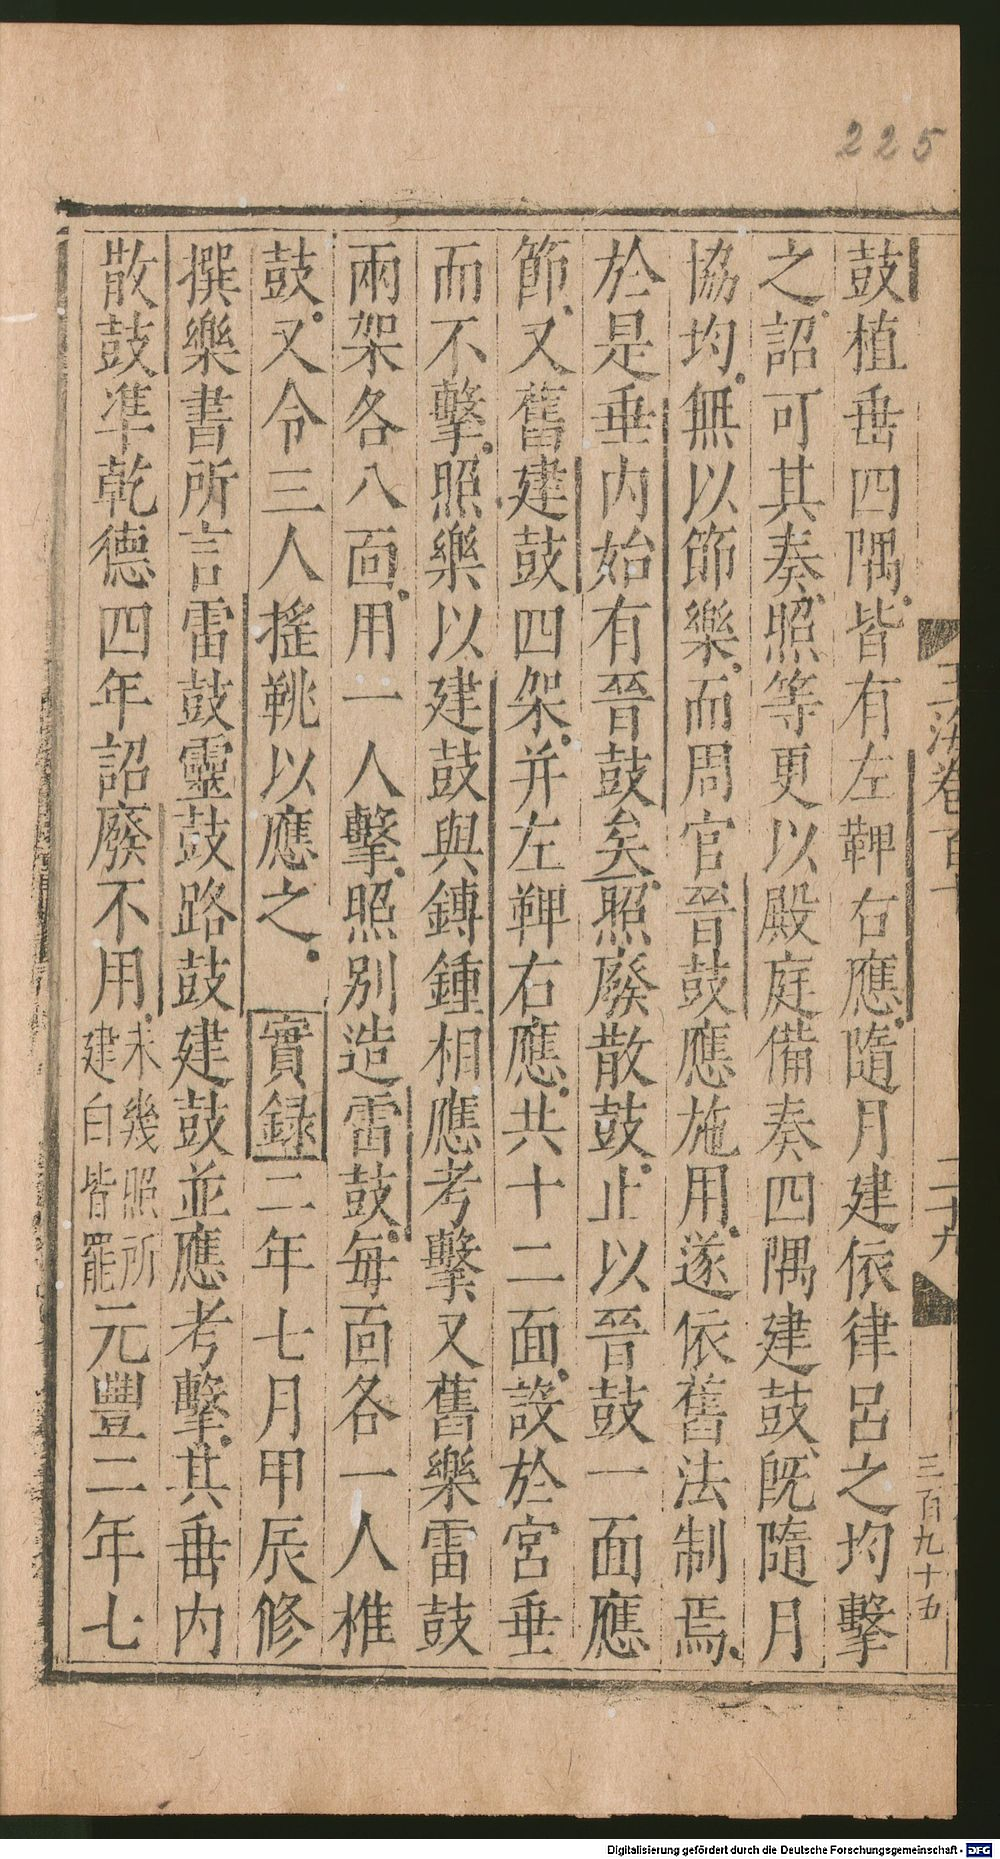 225
玉海卷百十
二十九
三百九十五
鼓植垂四隅皆有左鞞右應隨月建依律呂之均擊
之詔可其奏照等更以殿庭備奏四隅建鼓旣隨月
協均無以節樂而周官晉鼓應施用遂依舊法制焉
於是垂内始有晉鼓矣照廢散鼓止以晉鼓一面應
節又舊建鼓四架并左鞞右應共十二面設於宮垂
而不擊照樂以建鼓與鏄鍾相應考擊又舊樂雷鼓
兩架各八面用一人擊照别造雷鼓每面各一人椎
鼓又令三人搖鞉以應之實録二年七月甲辰修
撰樂書所言雷鼓靈鼓路鼓建鼓並應考擊其垂内
散鼓準乾德四年詔廢不用未幾照所建白皆罷元豐二年七
Digitalisierung gefördert durch die Deutsche Forschungsgemeinschaft - DFG